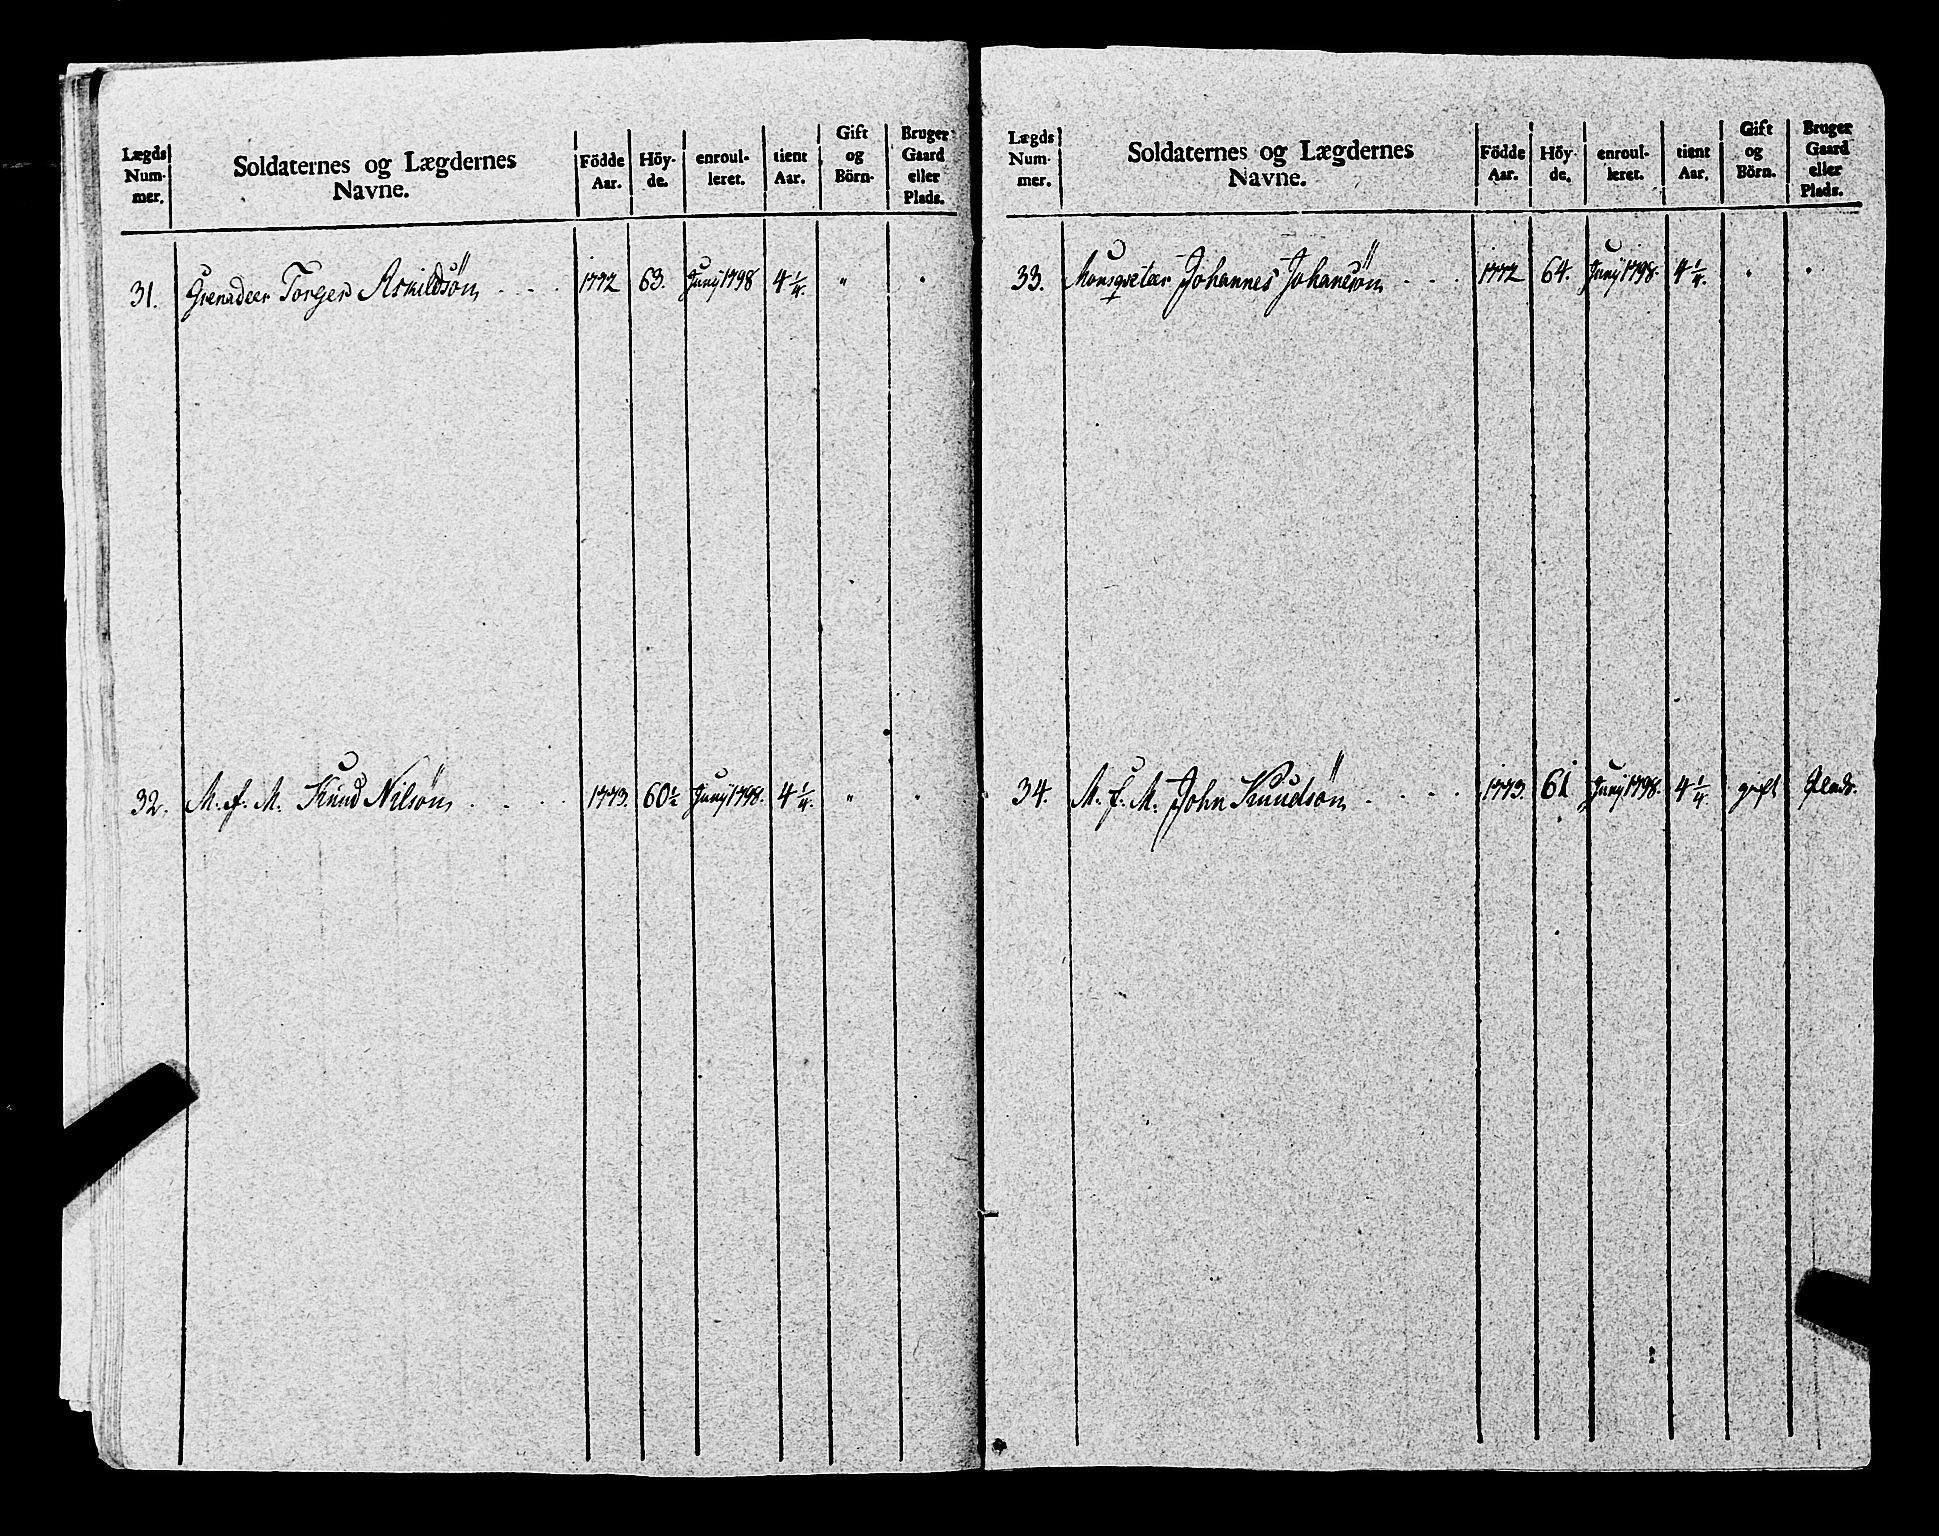 Lægds Nummer. | Soldaternes og Lægdernes Navne. | Födde Aar. | Höyde. | enroulleret. | tient Aar. | Gift og Börn. | Bruger Gaard eller Plads.
31. Grenadeer Torger Askildsön .... 1772 63. Junÿ 1798 4 1/4. " "
32. M. f. M. Knud Nilsön .... 1773. 60 1/2 Junÿ 1798. 4 1/4. " "
Lægds Nummer. | Soldaternes og Lægdernes Navne. | Födde Aar. | Höyde. | enroulleret. | tient Aar. | Gift og Börn. | Bruger Gaard eller Plads.
33. Mousqvetær Johannes Johanesön .... 1772 64. Junÿ 1798. 4 1/4. " "
34. M. f. M. John Knudsön .... 1773. 61 Junÿ 1798. 4 1/4. gift Plads.